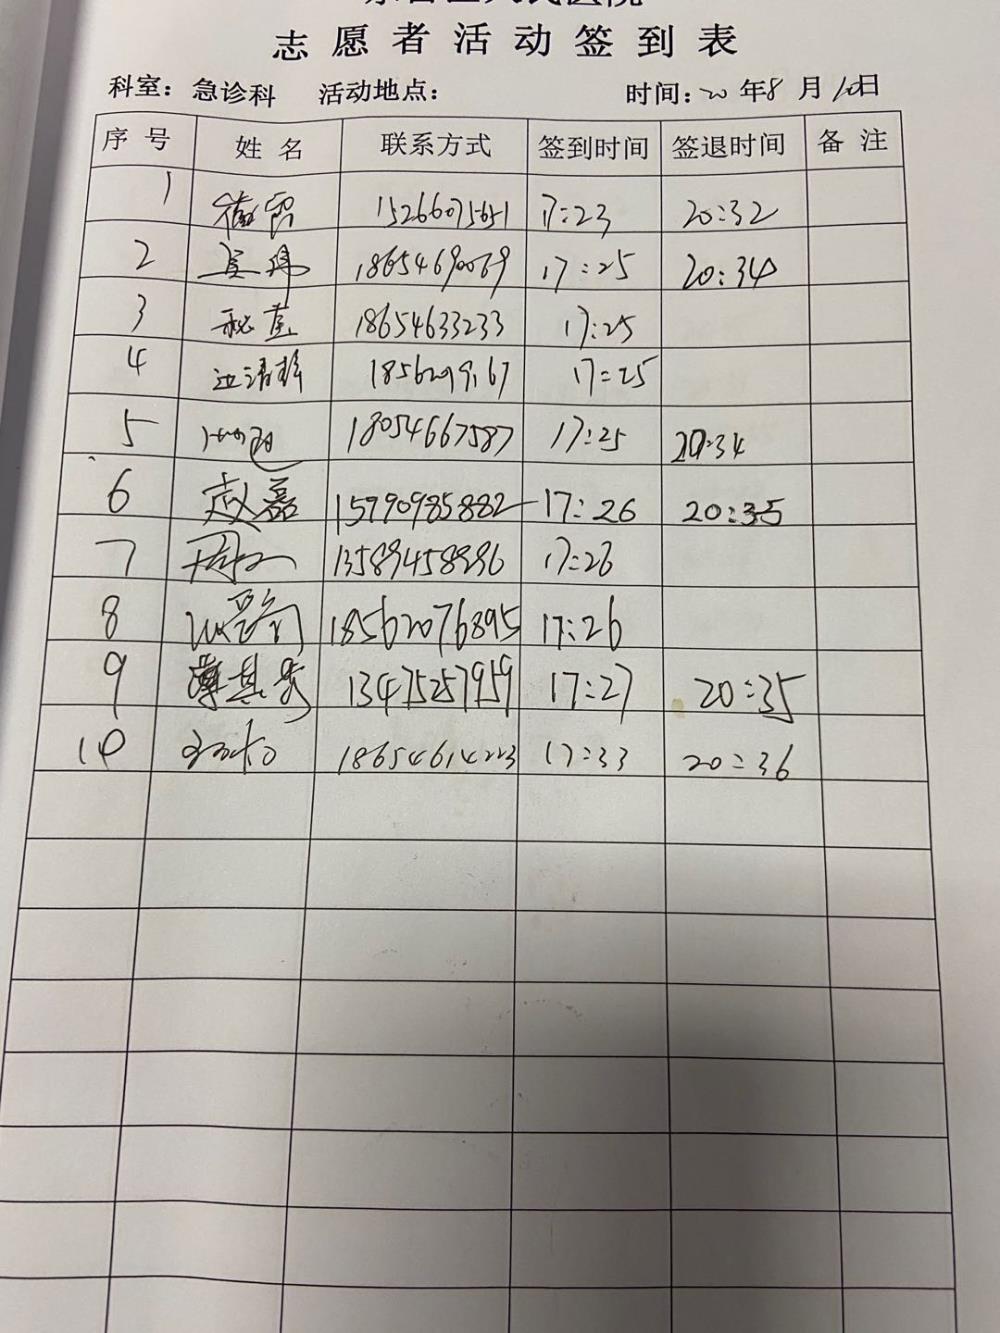 志愿者活动签到表
科室：急诊科 活动地点： 时间：20 年8月10日
序号 姓名 联系方式 签到时间 签退时间 备注
1 15266075651 17:23 20:32
2 18654690069 17:25 20:34
3 秘蕾 18654633233 17:25
4 17:25
5 18054667587 17:25 20:34
6 赵磊 15790985882 17:26 20:35
7 13589458896 17:26
8 18562076895 17:26
9 薄其秀 13475257959 17:27 20:35
10 18654614223 17:33 20:36